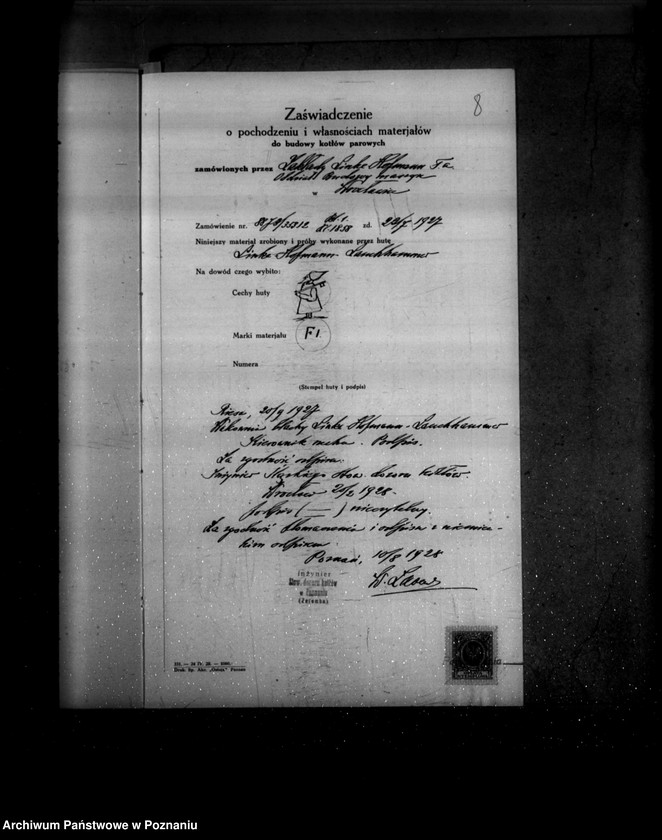 8
Zaświadczenie
o pochodzeniu i własnościach materjałów
do budowy kotłów parowych
zamówionych przez Zakłady Linke Hofmann
Oddział Budowy maszyn
w
Wrocławiu
Zamówienie nr. zd. 1927
Niniejszy materjał zrobiony i próby wykonane przez hutę
Linke Hofmann-Lauchhammer
Na dowód czego wybito:
Cechy huty
Marki materjału F1.
Numera
(Stempel huty i podpis)
Riesa, 20/9 1927
Linke Hofmann-Lauchhammer
Kierownik Podpis.
Za zgodność odpisu.
Inżynier Śląskiego Stow. dozoru kotłów.
Wrocław 1928.
Podpis (—) nieczytelny.
Za zgodność tłomaczenia i odpisu z niemiec-
kim odpisem
Poznań, 10/8 1928
inżynier
Stow. dozoru kotłów
w Poznaniu
Druk. Sp. Akc. Poznań
Archiwum Państwowe w Poznaniu